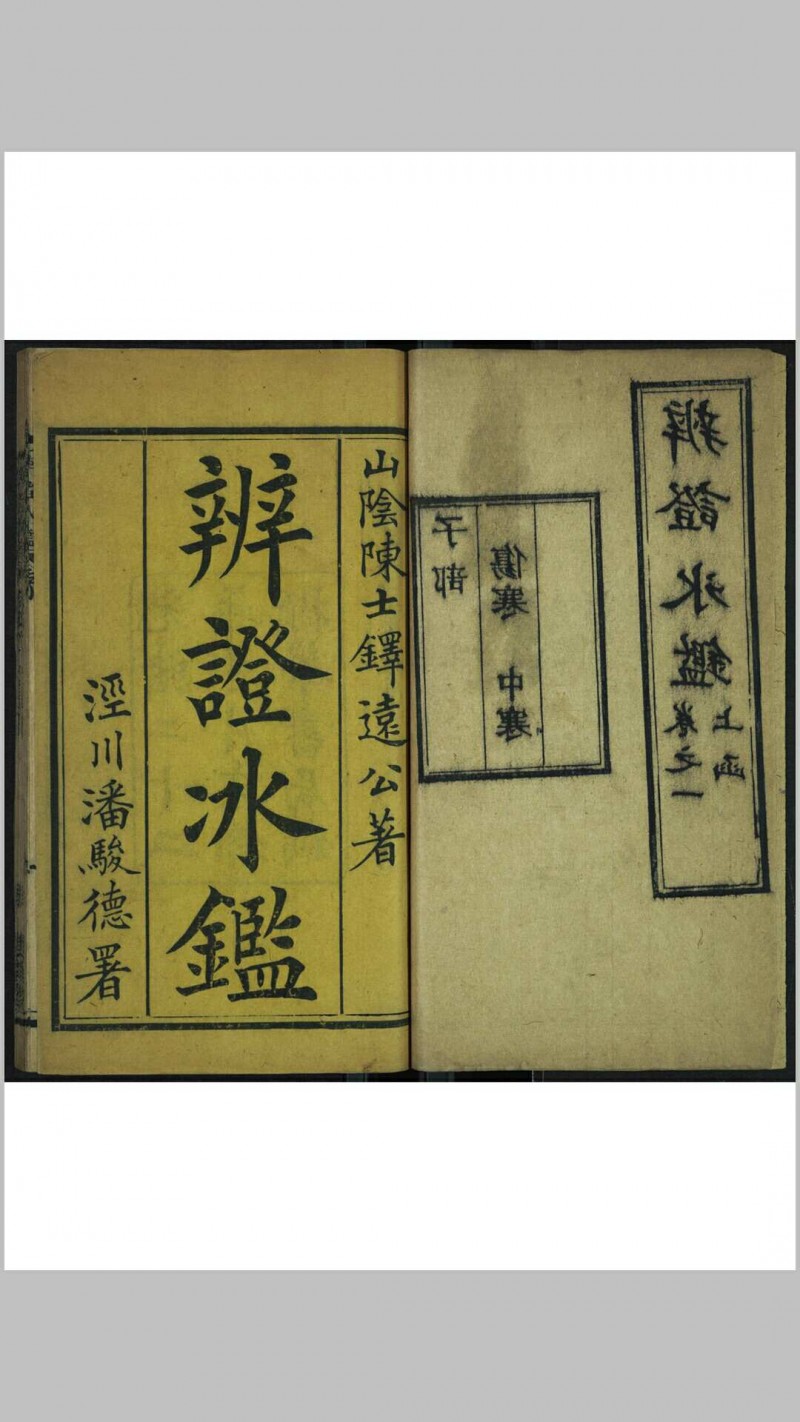 辨證冰鑑
上函
卷之一
子部
傷寒 中寒
山陰陳士鐸遠公著
辨證冰鑑
涇川潘駿德署